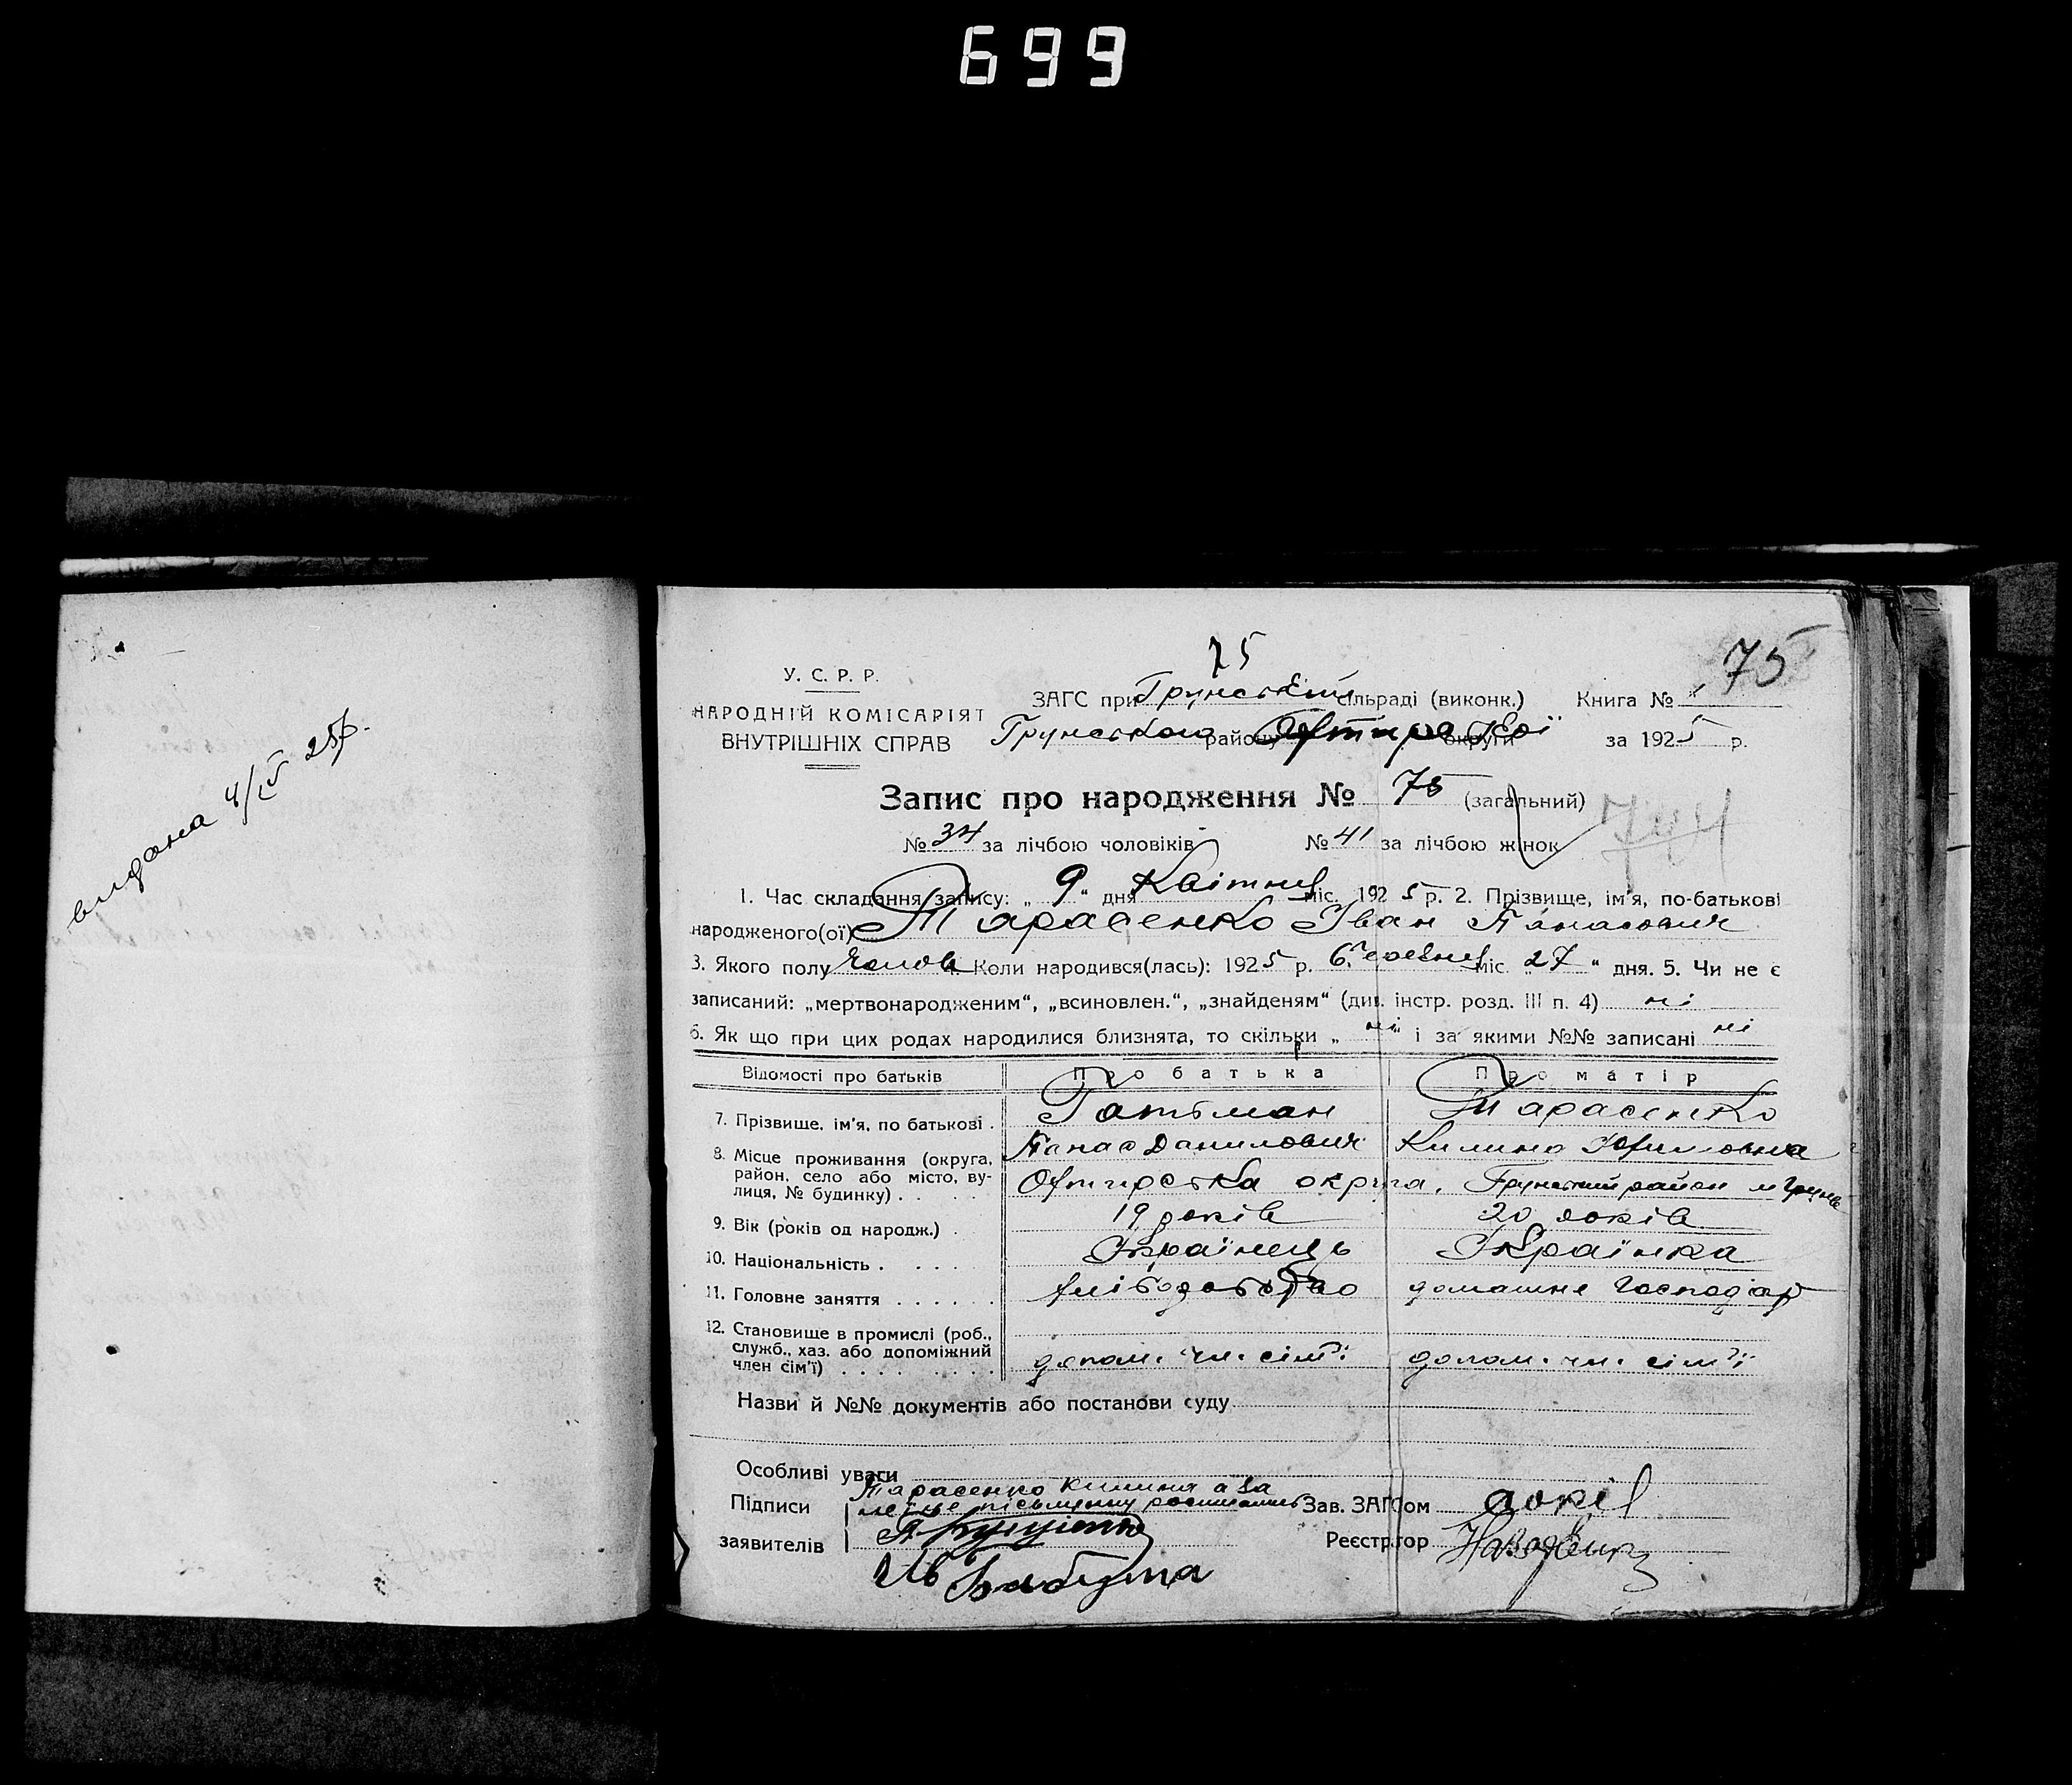 699
видана 4/V 25р.
75
75
У. С. Р. Р.
НАРОДНІЙ КОМІСАРІЯТ
ВНУТРІШНІХ СПРАВ
ЗАГС при Грунський сільраді (виконк.) Книга №
Грунського району округи за 1925 р.
Запис про народження № 75 (загальний) 744
№ 34 за лічбою чоловіків № 41 за лічбою жінок
1. Час складання запису: „ 9 “ дня Квітня міс. 1925 р. 2. Прізвище, ім'я, по-батькові
народженого(ої) Тарасенко Іван Панасович
3. Якого полу Чолов. 4. Коли народився(лась): 1925 р. Березня міс. „ 27 “ дня. 5. Чи не є
записаний: „мертвонародженим“, „всиновлен.“, „знайденям“ (див. інстр. розд. III п. 4) ні
6. Як що при цих родах народилися близнята, то скільки „ ні “ і за якими №№ записані ні
Відомості про батьків Про батька Про матір
7. Прізвище, ім'я, по батькові . Гатьман Тарасенко
Панас Данилович Килина Юхимовна
8. Місце проживання (округа,
район, село або місто, ву-
лиця, № будинку) . . Охтирська округа, Грунський район м Грунь
9. Вік (років од народж.) . 19 років 20 років
10. Національність . . . . . Українець Українка
11. Головне заняття . . . . . . хліборобство домашнє господар
12. Становище в промислі (роб.,
служб., хаз. або допоміжний
член сім'ї) . . . . . . . . допом. чл. сім'ї допом. чл. сім'ї
Назви й №№ документів або постанови суду
Особливі уваги
Підписи Тарасенко Килина а за
Зав. ЗАГСом
заявителів Реєстратор
Бабута